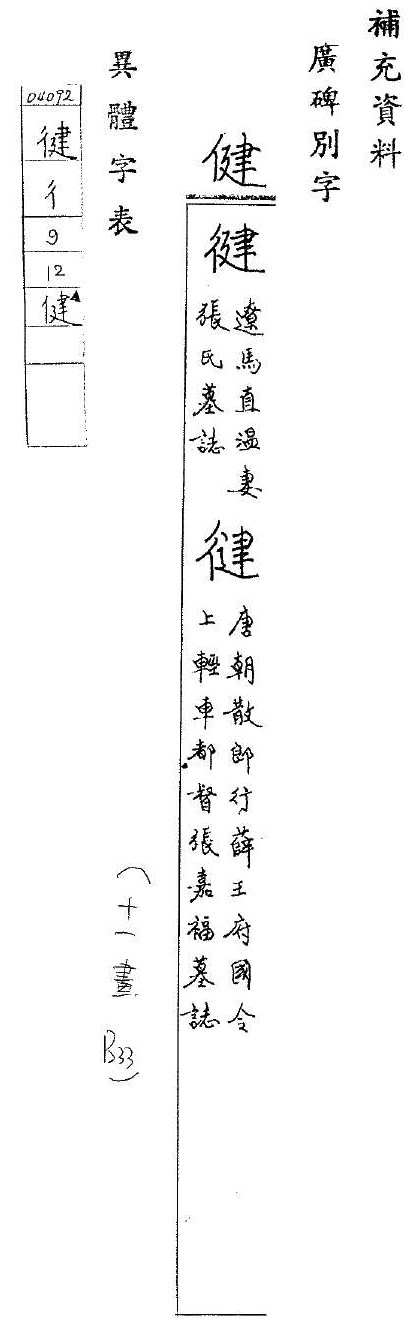 補充資料
廣碑別字
健
徤
遼馬直溫妻
張氏墓誌
唐朝散郎行薛王府國令
上輕車都督張嘉福墓誌
異體字表
(十一畫 B33)
04092
徤
彳
9
12
健